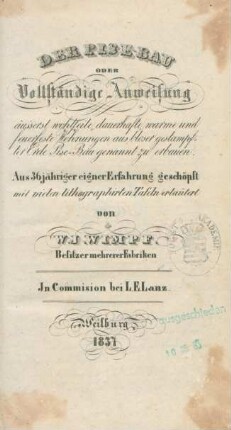 DER PISE-BAU
ODER
Vollständige Anweisung
äusserst wohlfeile, dauerhafte, warme und
feuerfeste Wohnungen aus bloser gestampf-
ter Erde, Pise-Bau genannt, zu erbauen.
Aus 36 jähriger eigner Erfahrung geschöpft
mit vielen lithographirten Tafeln erläutert
von
W. J. WIMPF.
Besitzer mehrerer Fabriken
In Commision bei L. E. Lanz.
Weilburg
1837
ausgeschieden